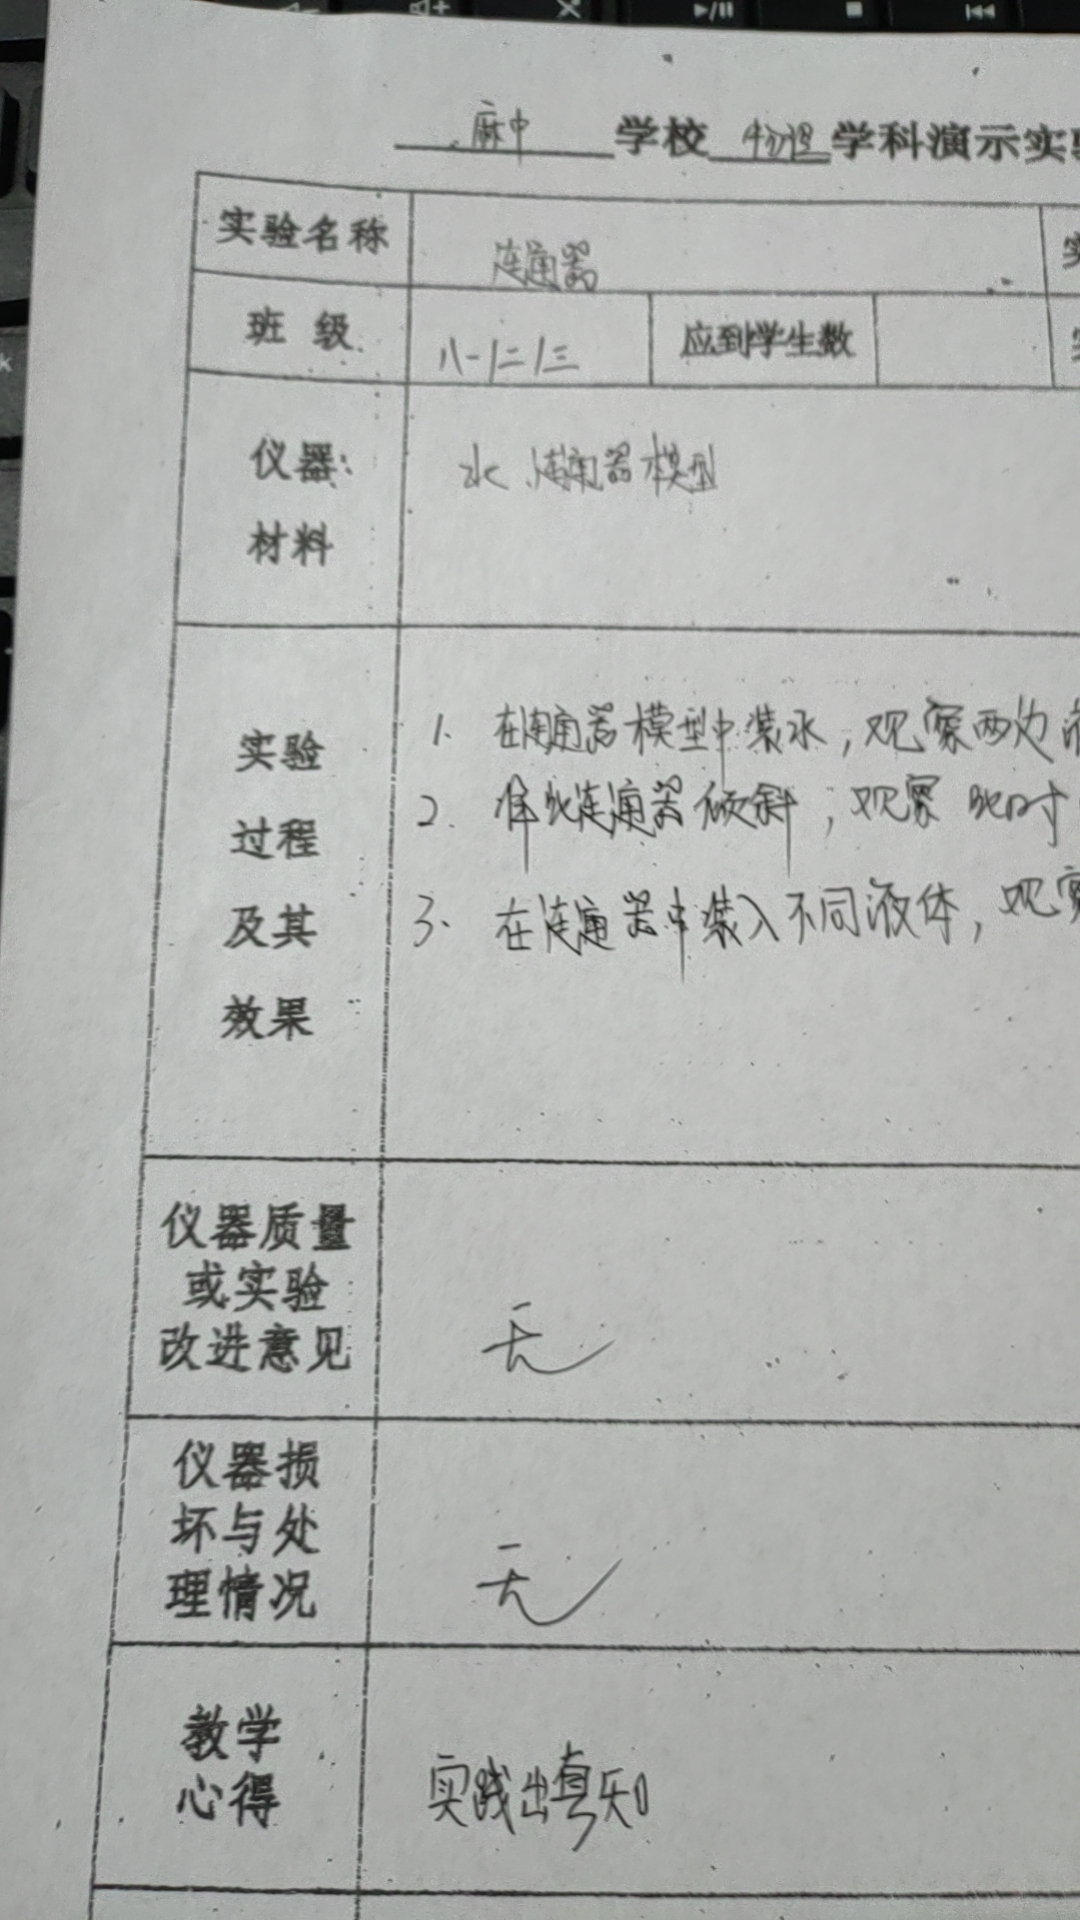 麻中 学校 物理 学科演示实
实验名称 连通器
班 级 八一、二、三 应到学生数
仪器: 水、连通器模型
材料
实验 1. 在连通器模型中装水,观察两边
过程 2. 使连通器倾斜,观察此时
及其 3. 在连通器中装入不同液体,观察
效果
仪器质量
或实验
改进意见 无
仪器损
坏与处
理情况 无
教学
心得 实践出真知